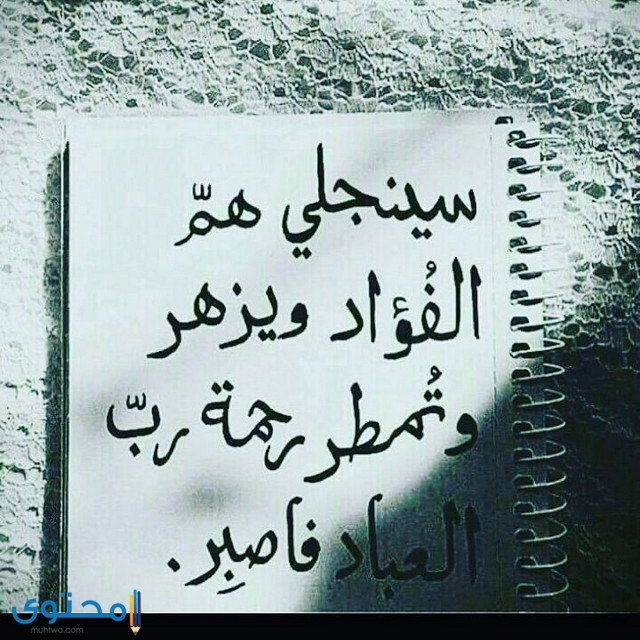 سينجلي همّ
الفُؤاد ويزهر
وتُمطر رحمة ربّ
العباد فاصبِر.
محتوى
muhtwa.com